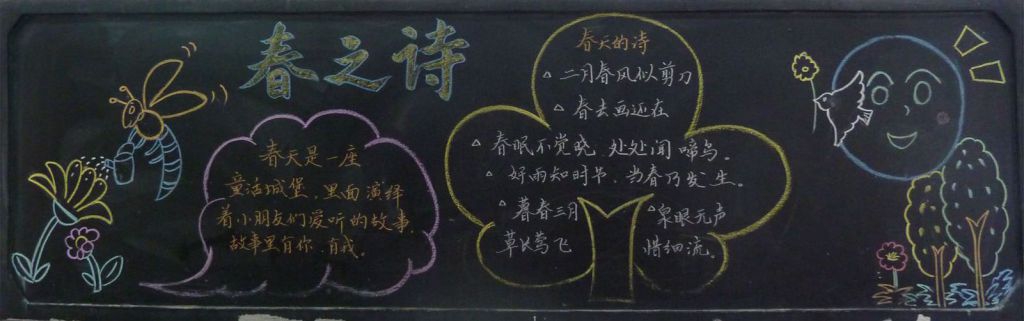 春之诗
春天是一座
童话城堡，里面演绎
着小朋友们爱听的故事，
故事里有你，有我。
春天的诗
△ 二月春风似剪刀
△ 春去画还在
△ 春眠不觉晓，处处闻啼鸟。
△ 好雨知时节，当春乃发生。
△ 暮春三月
草长莺飞
△ 泉眼无声
惜细流。